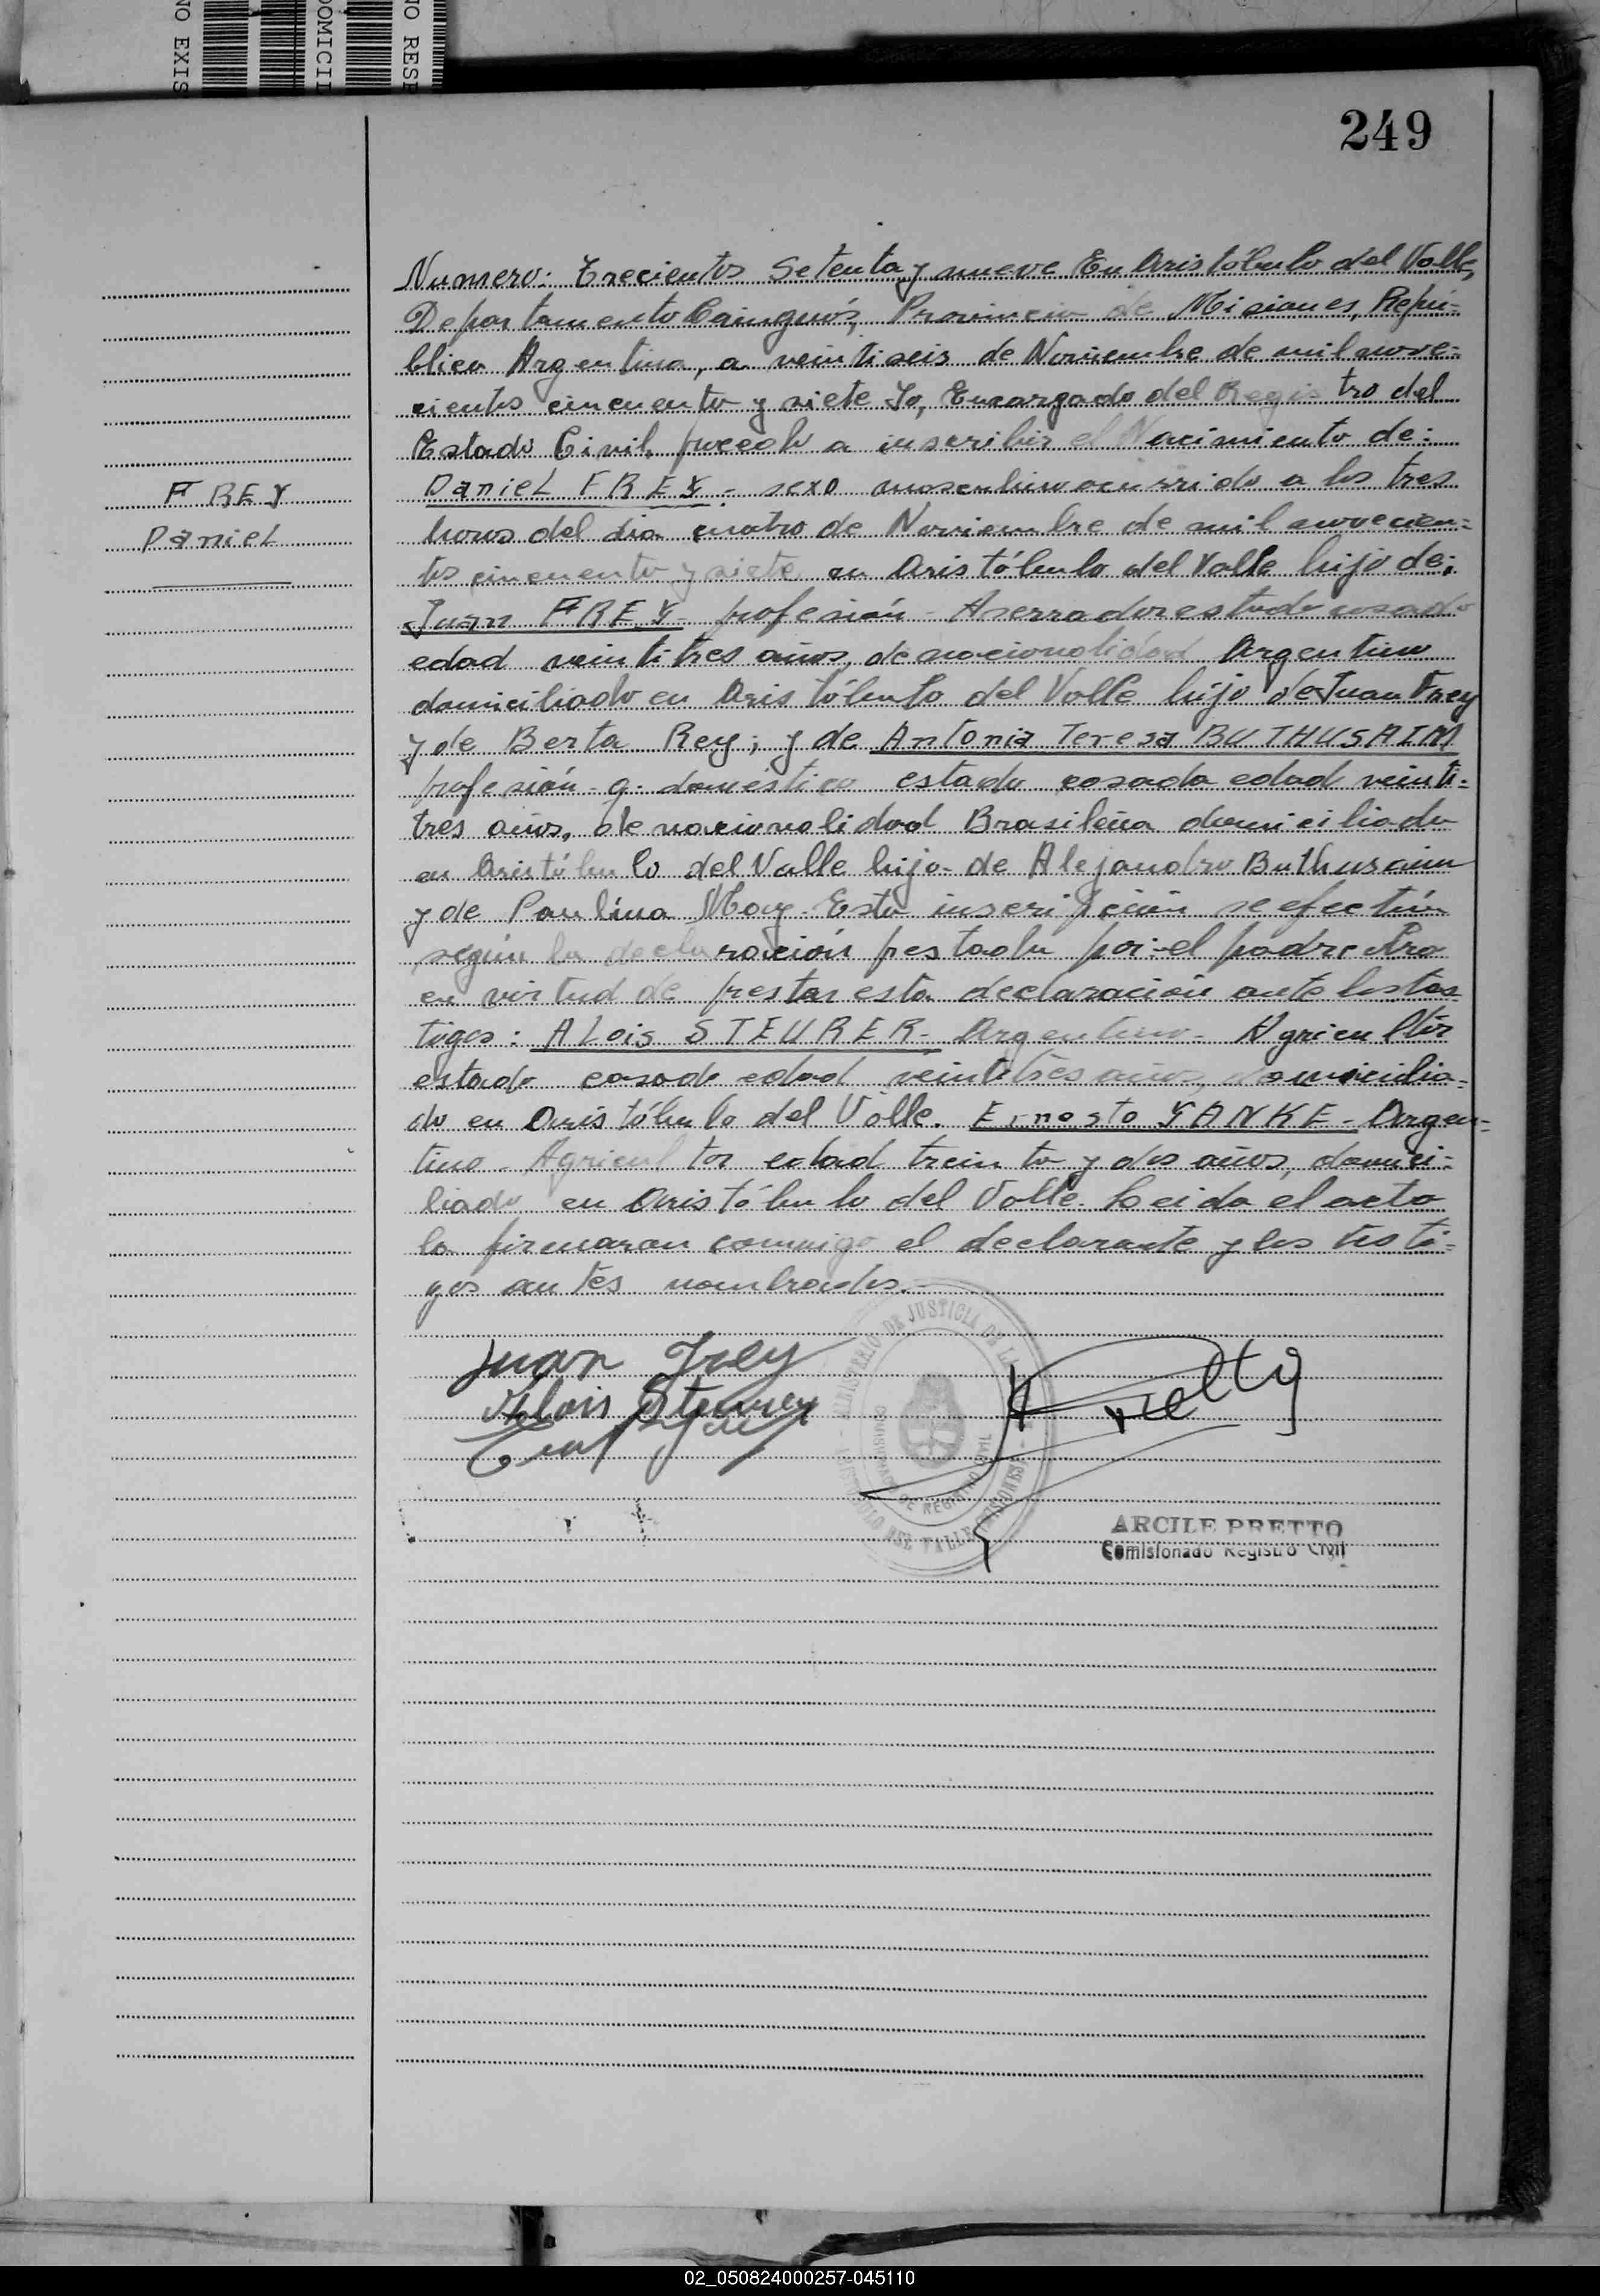 NO EXIS
DOMICIL
NO RESP
249
Numero: Trecientos Setenta y nueve En Aristóbulo del Valle,
Departamento Cainguás, Provincia de Misiones, Repú=
blica Argentina, a veintiseis de Noviembre de mil nove=
cientos cincuenta y siete Yo, Encargado del Registro del
Estado Civil, procedo a inscribir el Nacimiento de:
FREY
Daniel FREY - sexo masculino ocurrido a las tres
Daniel
horas del dia cuatro de Noviembre de mil novecien=
tos cincuenta y siete en Aristóbulo del Valle hijo de:
Juan FREY - profesión - Aserrador estado casado
edad veintitres años, de nacionalidad Argentino
domiciliado en Aristóbulo del Valle hijo de Juan Frey
y de Berta Rey; y de Antonia Teresa BUTHUSAIM
profesión - q. doméstico estado casada edad veinti=
tres años, de nacionalidad Brasileña domiciliada
en Aristóbulo del Valle hija - de Alejandro Buthusaim
y de Paulina May - Esta inscripción se efectúa
según la declaración prestada por: el padre
en virtud de prestar esta declaración ante los tes
tigos: Alois STEURER - Argentino - Agricultor
estado casado edad veintitrés años, domicilia=
do en Aristóbulo del Valle. Ernesto YANKE - Argen=
tino - Agricultor edad treinta y dos años, domici=
liado en Aristóbulo del Valle. Leida el acta
la firmaron conmigo el declarante y los testi=
gos antes nombrados.-
Juan Frey
Alois Steurer
MINISTERIO DE JUSTICIA DE LA
DE REGISTRO CIVIL
VALLE (MISIONES)
ARCILE PRETTO
Comisionado Registro Civil
02_050824000257-045110